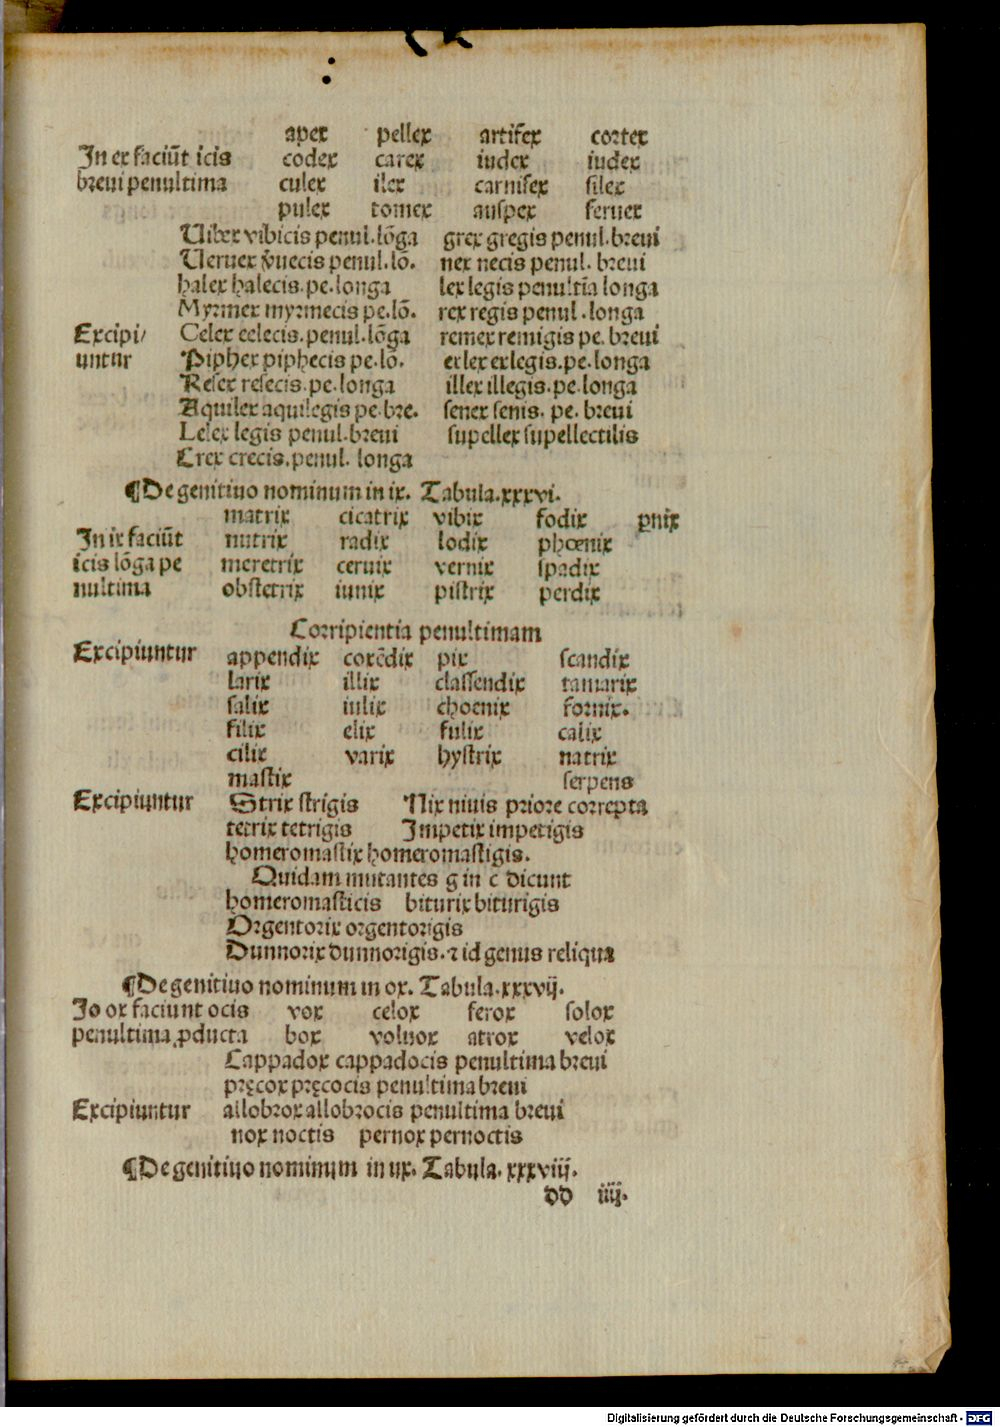 apex pellex artifex cortex
In ex faciūt icis codex carex iudex iudex
breui penultima culex ilex carnifex silex
pulex tomex auspex feruex
Uibex vibicis penul. lōga grex gregis penul. breui
Ueruex v̄uecis penul. lō. nex necis penul. breui
halex halecis. pe. longa lex legis penultīa longa
Myrmex myrmecis pe. lō. rex regis penul. longa
Excipi/ Celex celecis. penul. lōga remex remigis pe. breui
untur Piphex piphecis pe. lō. exlex exlegis. pe. longa
Resex resecis. pe. longa illex illegis. pe. longa
Aquilex aquilegis pe. bre. senex senis. pe. breui
Lelex legis penul. breui supellex supellectilis
Crex crecis. penul. longa
¶De genitiuo nominum in ix. Tabula. xxxvi.
matrix cicatrix vibix fodix pnix
In ix faciūt nutrix radix lodix phœnix
icis lōga pe meretrix ceruix vernix spadix
nultima obstetrix iunix pistrix perdix
Corripientia penultimam
Excipiuntur appendix coxēdix pix scandix
larix illix classendix tamarix
salix iulix choenix fornix.
filix elix fulix calix
cilix varix hystrix natrix
mastix serpens
Excipiuntur Strix strigis Nix niuis priore correpta
tetrix tetrigis Impetix impetigis
homeromastix homeromastigis.
Quidam mutantes g in c dicunt
homeromasticis biturix biturigis
Orgentorix orgentorigis
Dunnorix dunnorigis. ⁊ id genus reliqua
¶De genitiuo nominum in ox. Tabula. xxxvij.
Io ox faciunt ocis vox celox ferox solox
penultima ꝓducta box voluox atrox velox
Cappadox cappadocis penultima breui
pręcox pręcocis penultima breui
Excipiuntur allobrox allobrocis penultima breui
nox noctis pernox pernoctis
¶De genitiuo nominum in ux. Tabula. xxxviij.
dd iiij.
Digitalisierung gefördert durch die Deutsche Forschungsgemeinschaft - DFG